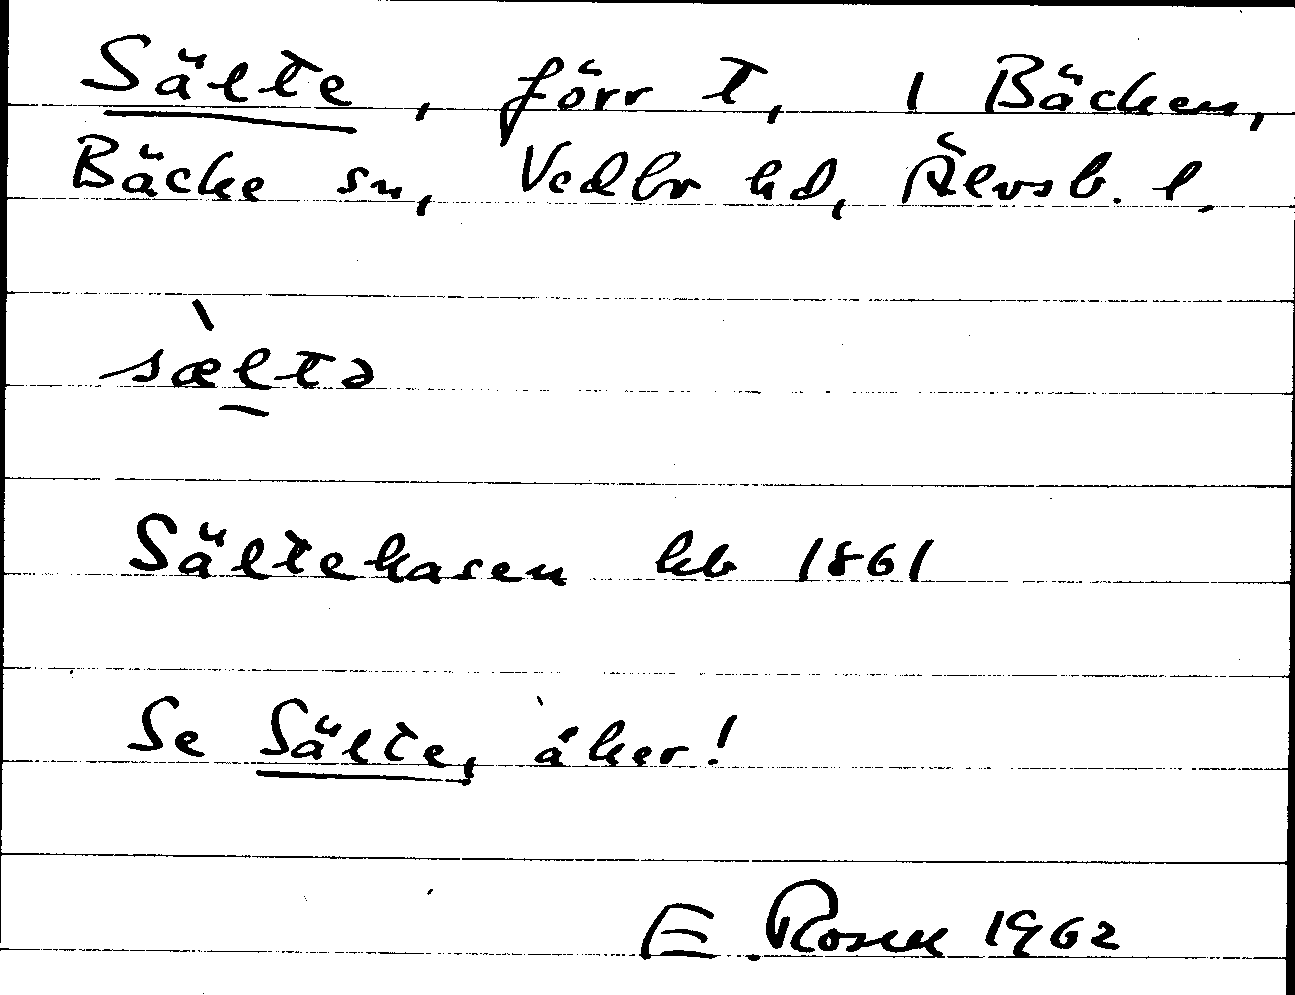 Sälte, förr t, 1 Bäcken,
Bäcke sn, Vedbo hd, Älvsb. l.
sæ̀l̠tə
Sältekasen kb 1861
Se Sälte, åker!
E. Rosen 1962